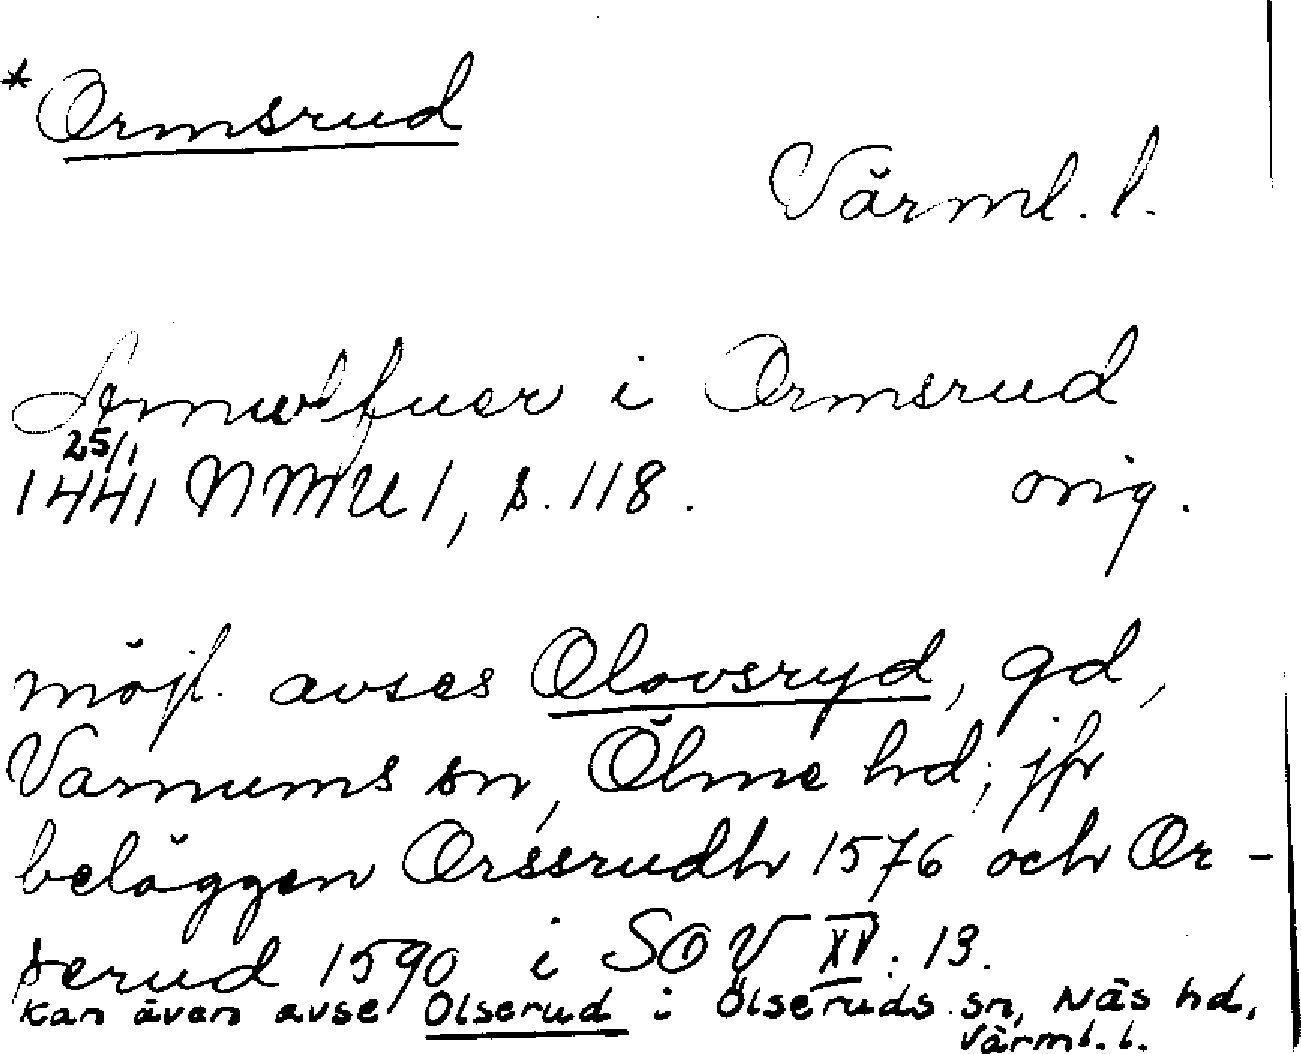 *Ormsrud
Värml. l.
Arnwlfuer i Ormsrud
25/1
1441 NMU 1, s. 118. orig.
möjl. avses Olovsryd, gd,
Varnums sn, Ölme hd; jfr
beläggen Orssrudh 1576 och Or-
serud 1590 i SOV XV: 13.
kan även avse Olserud i Ölseruds sn, Näs hd,
Värml. l.